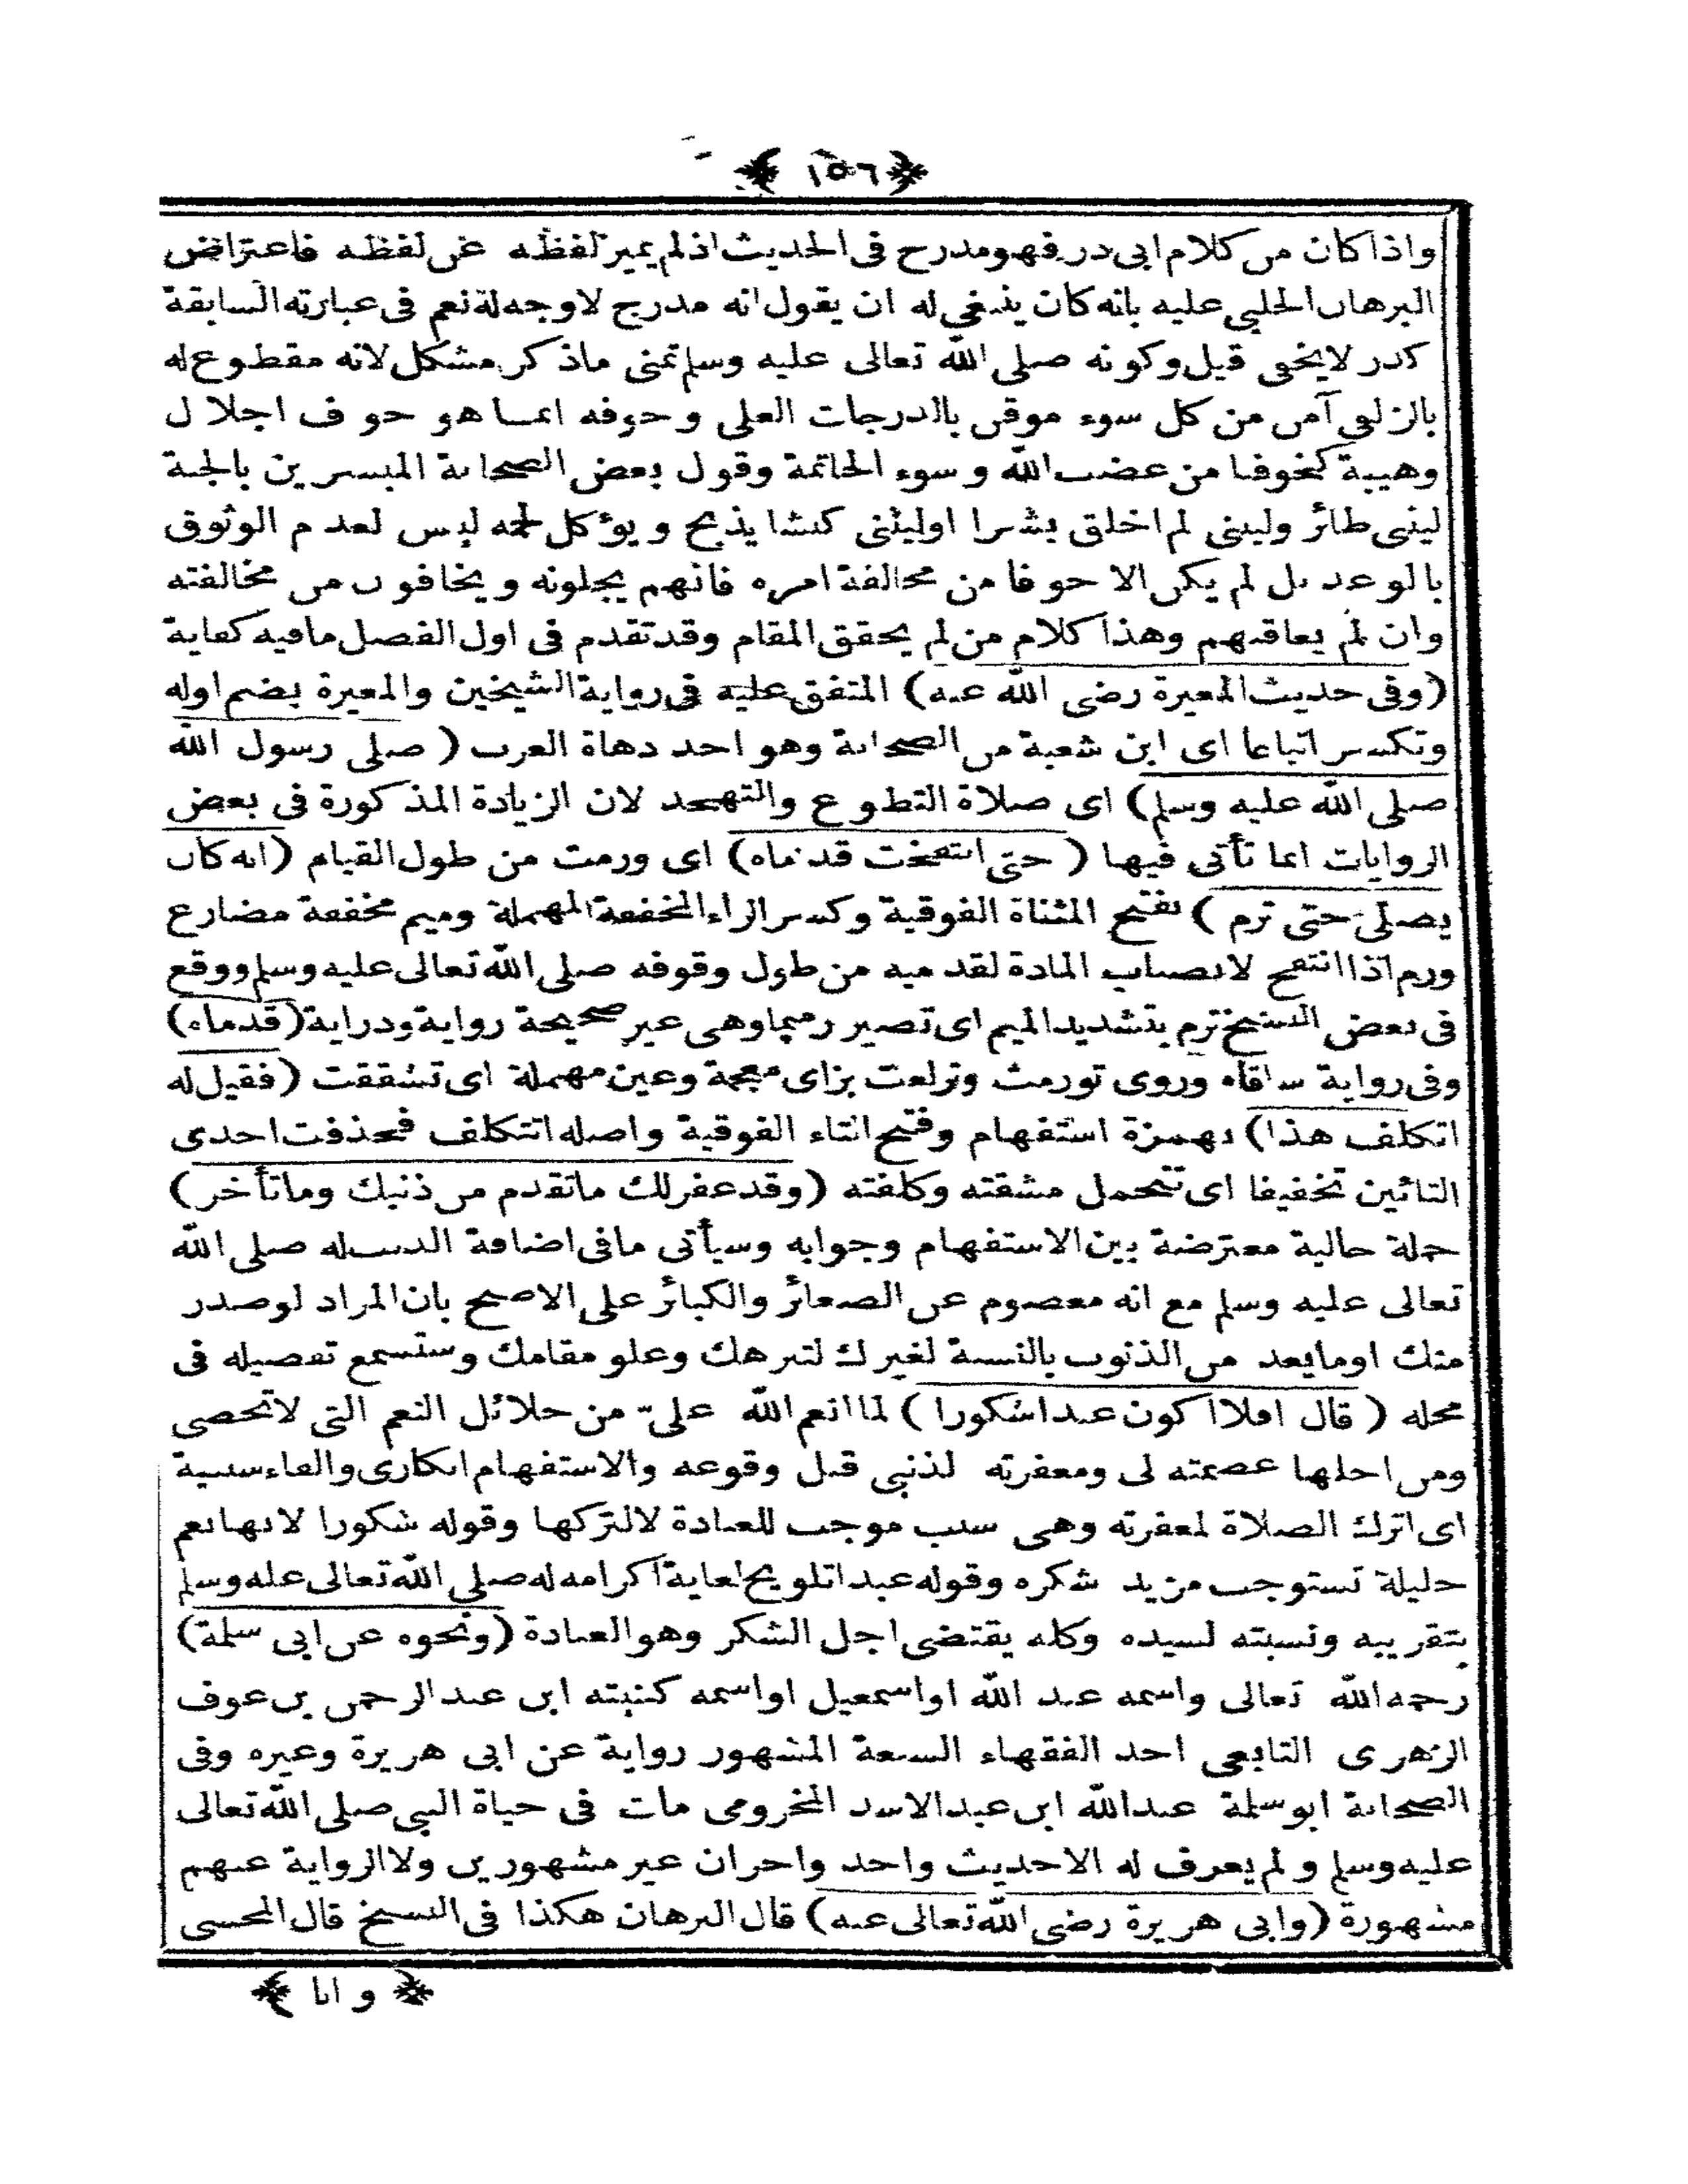 ﴿ ١٥٦ ﴾
واذا كان من كلام ابى ذر فهو مدرج فى الحديث اذ لم يميز لفظه عن لفظه فاعتراض
البرهان الحلبى عليه بانه كان ينبغى له ان يقول انه مدرج لا وجه له نعم فى عبارته السابقة
كدر لا يخفى قيل وكونه صلى الله تعالى عليه وسلم تمنى ماذكر مشكل لانه مقطوع له
بالزلفى آمن من كل سوء موقن بالدرجات العلى وخوفه انما هو خوف اجلال
وهيبة كخوفنا من غضب الله وسوء الخاتمة وقول بعض الصحابة المبشرين بالجنة
ليتنى طائر وليتنى لم اخلق بشرا اوليتنى كبشا يذبح ويؤكل لحمه ليس لعدم الوثوق
بالوعد بل لم يكن الا خوفا من مخالفة امره فانهم يجلونه ويخافون من مخالفته
وان لم يعاقبهم وهذا كلام من لم يحقق المقام وقد تقدم فى اول الفصل مافيه كفاية
(وفى حديث المغيرة رضى الله عنه) المتفق عليه فى رواية الشيخين والمغيرة بضم اوله
وتكسر اتباعا اى ابن شعبة من الصحابة وهو احد دهاة العرب (صلى رسول الله
صلى الله عليه وسلم) اى صلاة التطوع والتهجد لان الزيادة المذكورة فى بعض
الروايات انما تأتى فيها (حتى انتفخت قدماه) اى ورمت من طول القيام (انه كان
يصلى حتى ترم) بفتح المثناة الفوقية وكسر الراء المخففة المهملة وميم مخففة مضارع
ورم اذا انتفخ لانصباب المادة لقدميه من طول وقوفه صلى الله تعالى عليه وسلم ووقع
فى بعض النسخ ترم بتشديد الميم اى تصير رميما وهى غير صحيحة رواية ودراية (قدماه)
وفى رواية ساقاه وروى تورمت وتزلعت بزاى معجمة وعين مهملة اى تشققت (فقيل له
اتكلف هذا) بهمزة استفهام وفتح التاء الفوقية واصله اتتكلف فحذفت احدى
التائين تخفيفا اى تتحمل مشقته وكلفته (وقد غفر لك ماتقدم من ذنبك وماتأخر)
جملة حالية معترضة بين الاستفهام وجوابه وسيأتى مافى اضافة الذنب له صلى الله
تعالى عليه وسلم مع انه معصوم عن الصغائر والكبائر على الاصح بان المراد لو صدر
منك اومايعد من الذنوب بالنسبة لغيرك لتنزهك وعلو مقامك وستسمع تفصيله فى
محله (قال افلا اكون عبدا شكورا) لما انعم الله علىّ من جلائل النعم التى لاتحصى
ومن اجلها عصمته لى ومغفرته لذنبى قبل وقوعه والاستفهام انكارى والفاء سببية
اى اترك الصلاة لمغفرته وهى سبب موجب للعبادة لالتركها وقوله شكورا لانها نعم
جليلة تستوجب مزيد شكره وقوله عبدا تلويح لغاية اكرامه له صلى الله تعالى عليه وسلم
بتقريبه ونسبته لسيده وكله يقتضى اجل الشكر وهو العبادة (ونحوه عن ابى سلمة)
رحمه الله تعالى واسمه عبد الله اواسمعيل اواسمه كنيته ابن عبد الرحمن بن عوف
الزهرى التابعى احد الفقهاء السبعة المشهور رواية عن ابى هريرة وغيره وفى
الصحابة ابوسلمة عبد الله ابن عبد الاسد المخزومى مات فى حياة النبى صلى الله تعالى
عليه وسلم ولم يعرف له الاحديث واحد واخران غير مشهورين ولا الرواية عنهم
مشهورة (وابى هريرة رضى الله تعالى عنه) قال البرهان هكذا فى النسخ قال المحشى
﴿ وانا ﴾